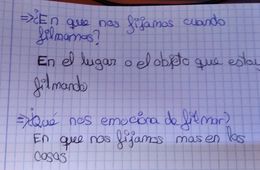 =>¿En que nos fijamos cuando
filmamos?
En el lugar o el objeto que estoy
filmando
=>¿Qué nos emociona de filmar?
En que nos fijamos mas en las
cosas